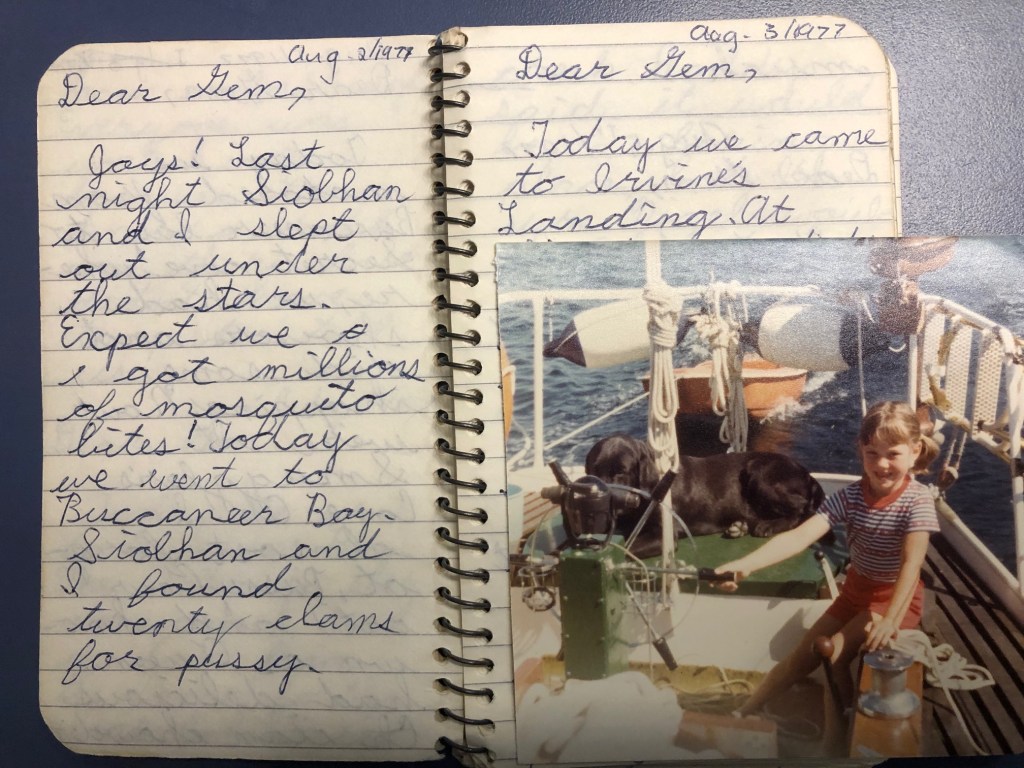 Aug. 2/1977
Dear Gem,
Joys! Last
night Siobhan
and I slept
out under
the stars.
Expect we
I got millions
of mosquito
bites! Today
we went to
Buccaneer Bay.
Siobhan and
I found
twenty clams
for pussy.
Aug. 3/1977
Dear Gem,
Today we came
to Irvine's
Landing. At